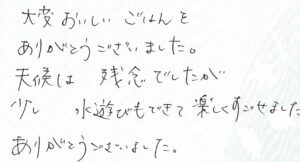 大変 おいしい ごはんを
ありがとうございました。
天候は 残念でしたが
少し 水遊びもできて 楽しくすごせました
ありがとうございました。